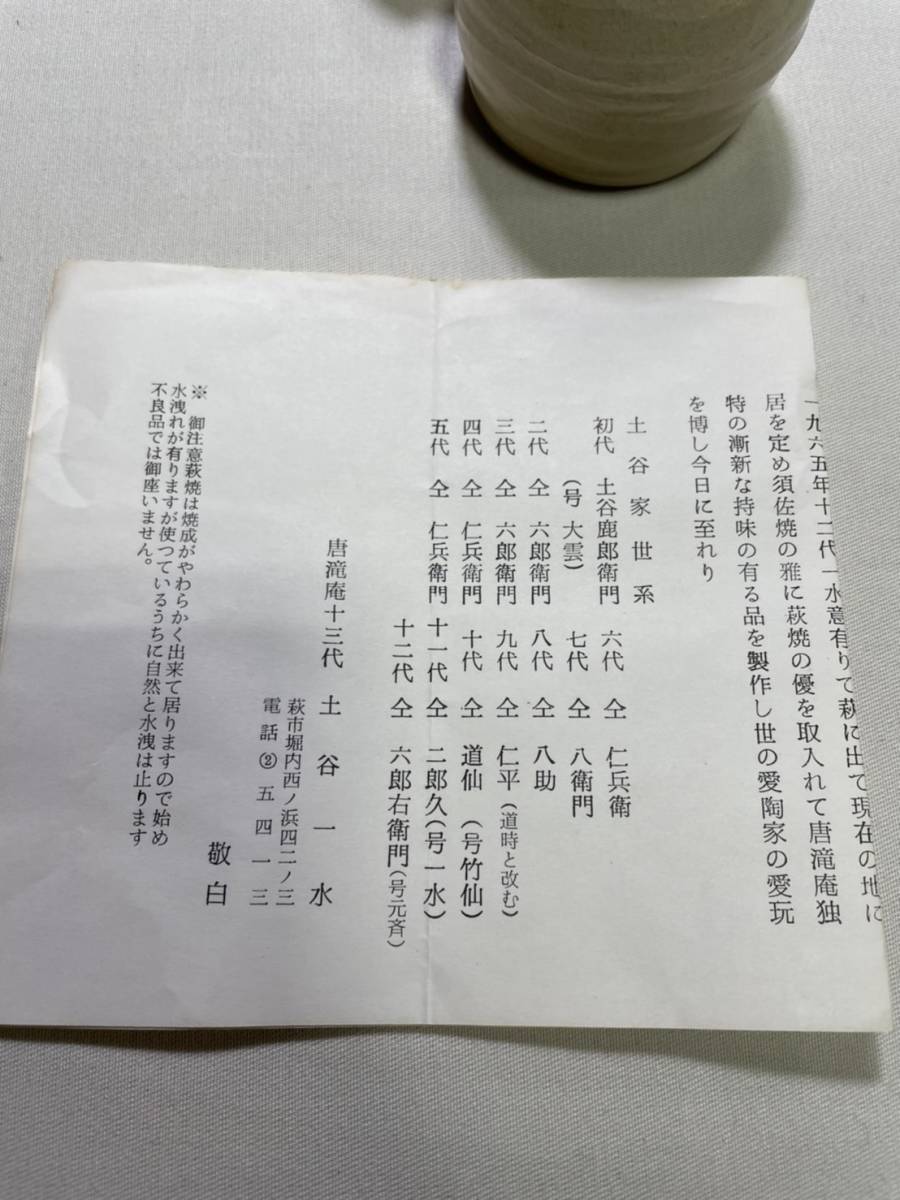 一九六五年十二代一水意有りて萩に出て現在の地に
居を定め須佐焼の雅に萩焼の優を取入れて唐滝庵独
特の漸新な持味の有る品を製作し世の愛陶家の愛玩
を博し今日に至れり
土谷家世系
初代 土谷鹿郎衛門
(号 大雲)
二代 仝 六郎衛門
三代 仝 六郎衛門
四代 仝 仁兵衛門
五代 仝 仁兵衛門
六代 仝 仁兵衛
七代 仝 八衛門
八代 仝 八助
九代 仝 仁平(道時と改む)
十代 仝 道仙(号竹仙)
十一代 仝 二郎久(号一水)
十二代 仝 六郎右衛門(号元斉)
唐滝庵十三代 土谷一水
萩市堀内西ノ浜四二ノ三
電話② 五四一三
敬白
※ 御注意萩焼は焼成がやわらかく出来て居りますので始め
水洩れが有りますが使つているうちに自然と水洩は止ります
不良品では御座いません。